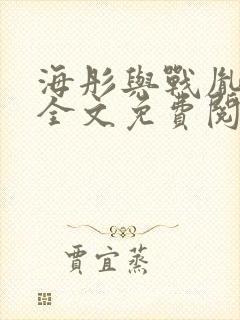 海彤與戰胤
全文免費閱
賈宜蒸